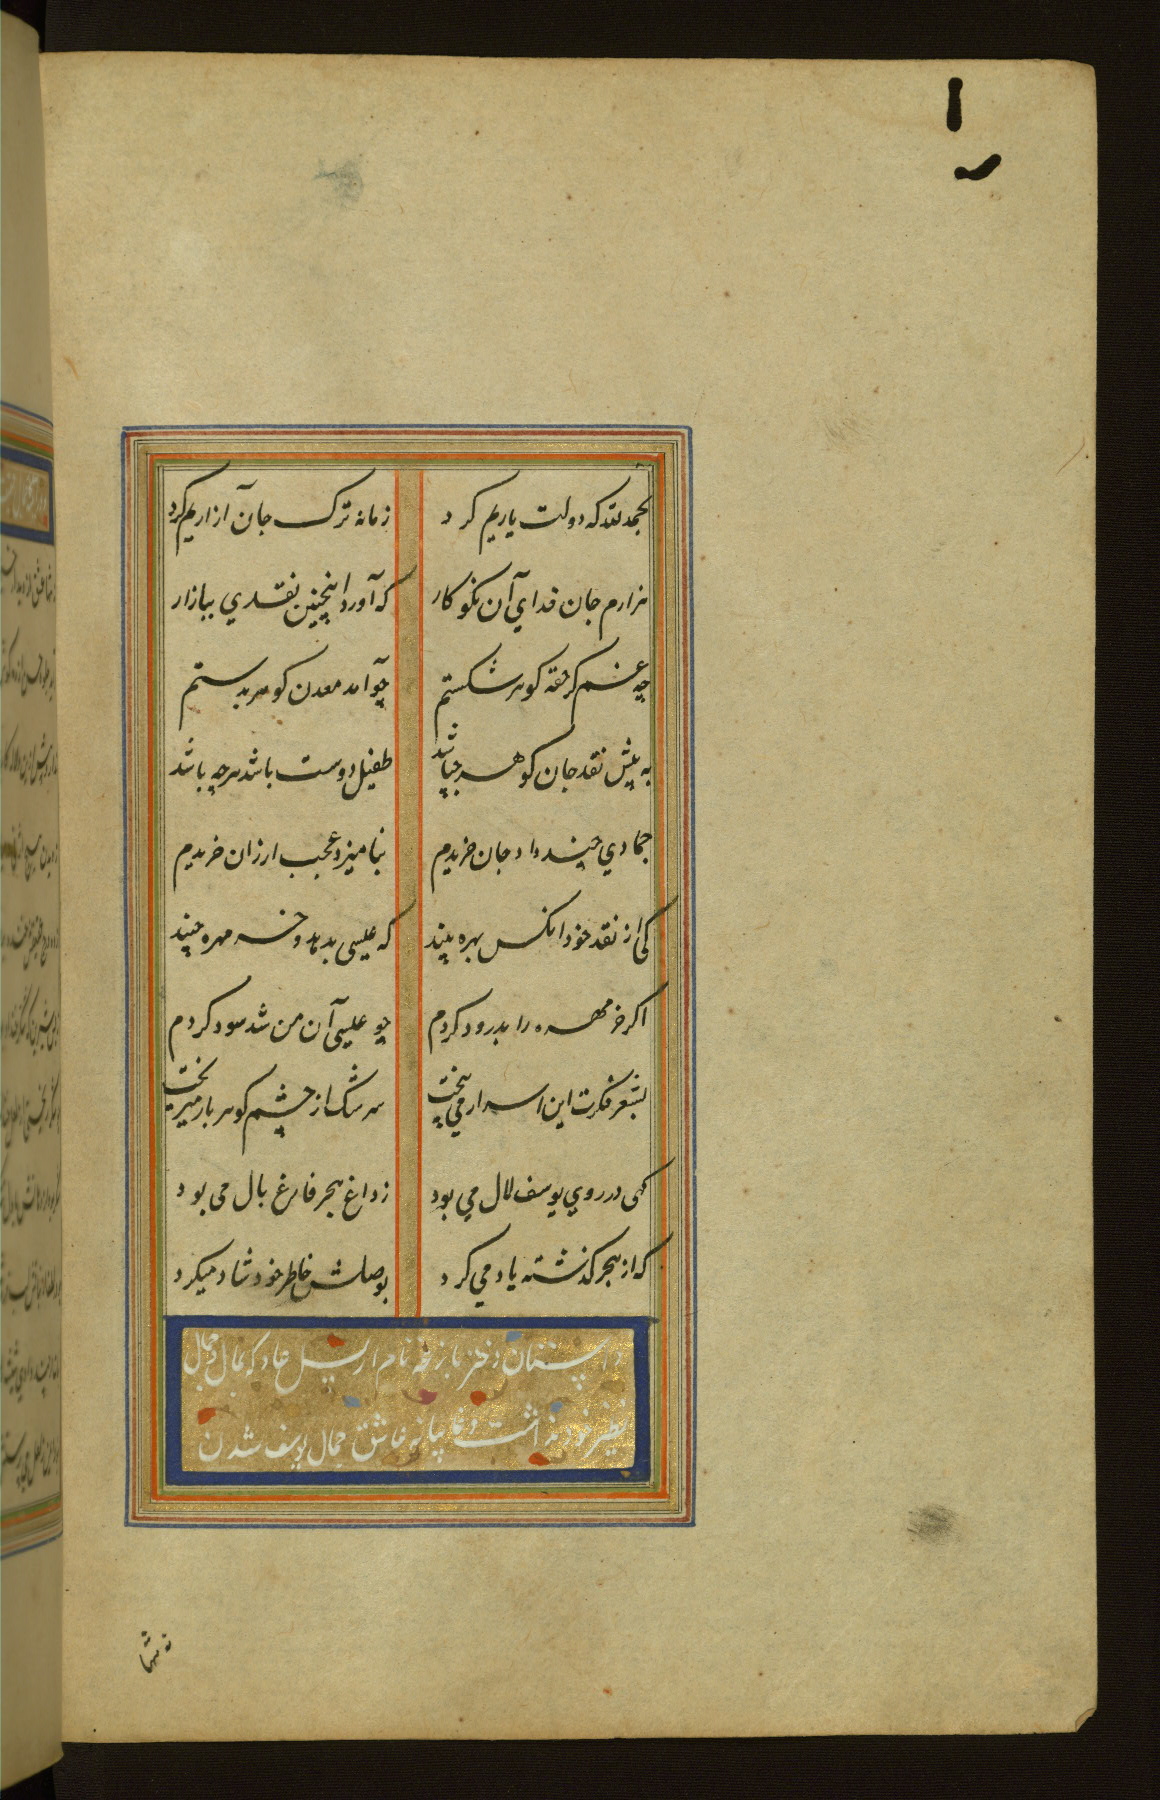 بحمد لله که دولت یاریم کرد
زمانه ترک جان آزاریم کرد
هزارم جان فداي آن نکوکار
که آورد اینچنین نقدي ببازار
چه غم گر حقه گوهر شکستم
چو آمد معدن گوهر بدستم
به پیش نقد جان گوهر چباشد
طفیل دوست باشد هرچه باشد
جمادي چند دادم جان خریدم
بنامیزد عجب ارزان خریدم
کی از نقد خود انکس بهره بیند
که عیسی بدهد و خرمهره چیند
اگر خرمهره را بدرود کردم
چو عیسی آن من شد سود کردم
بشعر فکرت این اسرار می بیخت
سرشک از چشم گوهر بار میریخت
گهی در روي یوسف لال می بود
زداغ هجر فارغ بال می بود
گه از هجر گذشته یاد می کرد
بوصلش خاطر خود شاد میکرد
داستان دختر بازغه نام از نسل عاد که بمال و جمال
نظیر خود نداشت و غایبانه عاشق جمال یوسف شدن